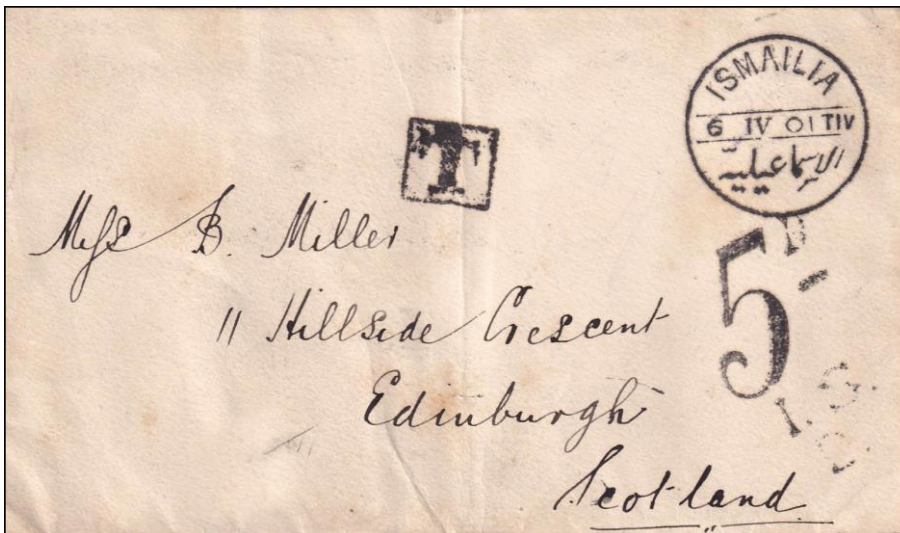 ISMAILIA
6 IV 01 TIV
الإسماعيلية
T
Miss B. Miller
11 Hillside Crescent
Edinburgh
Scotland
5D
I.S.